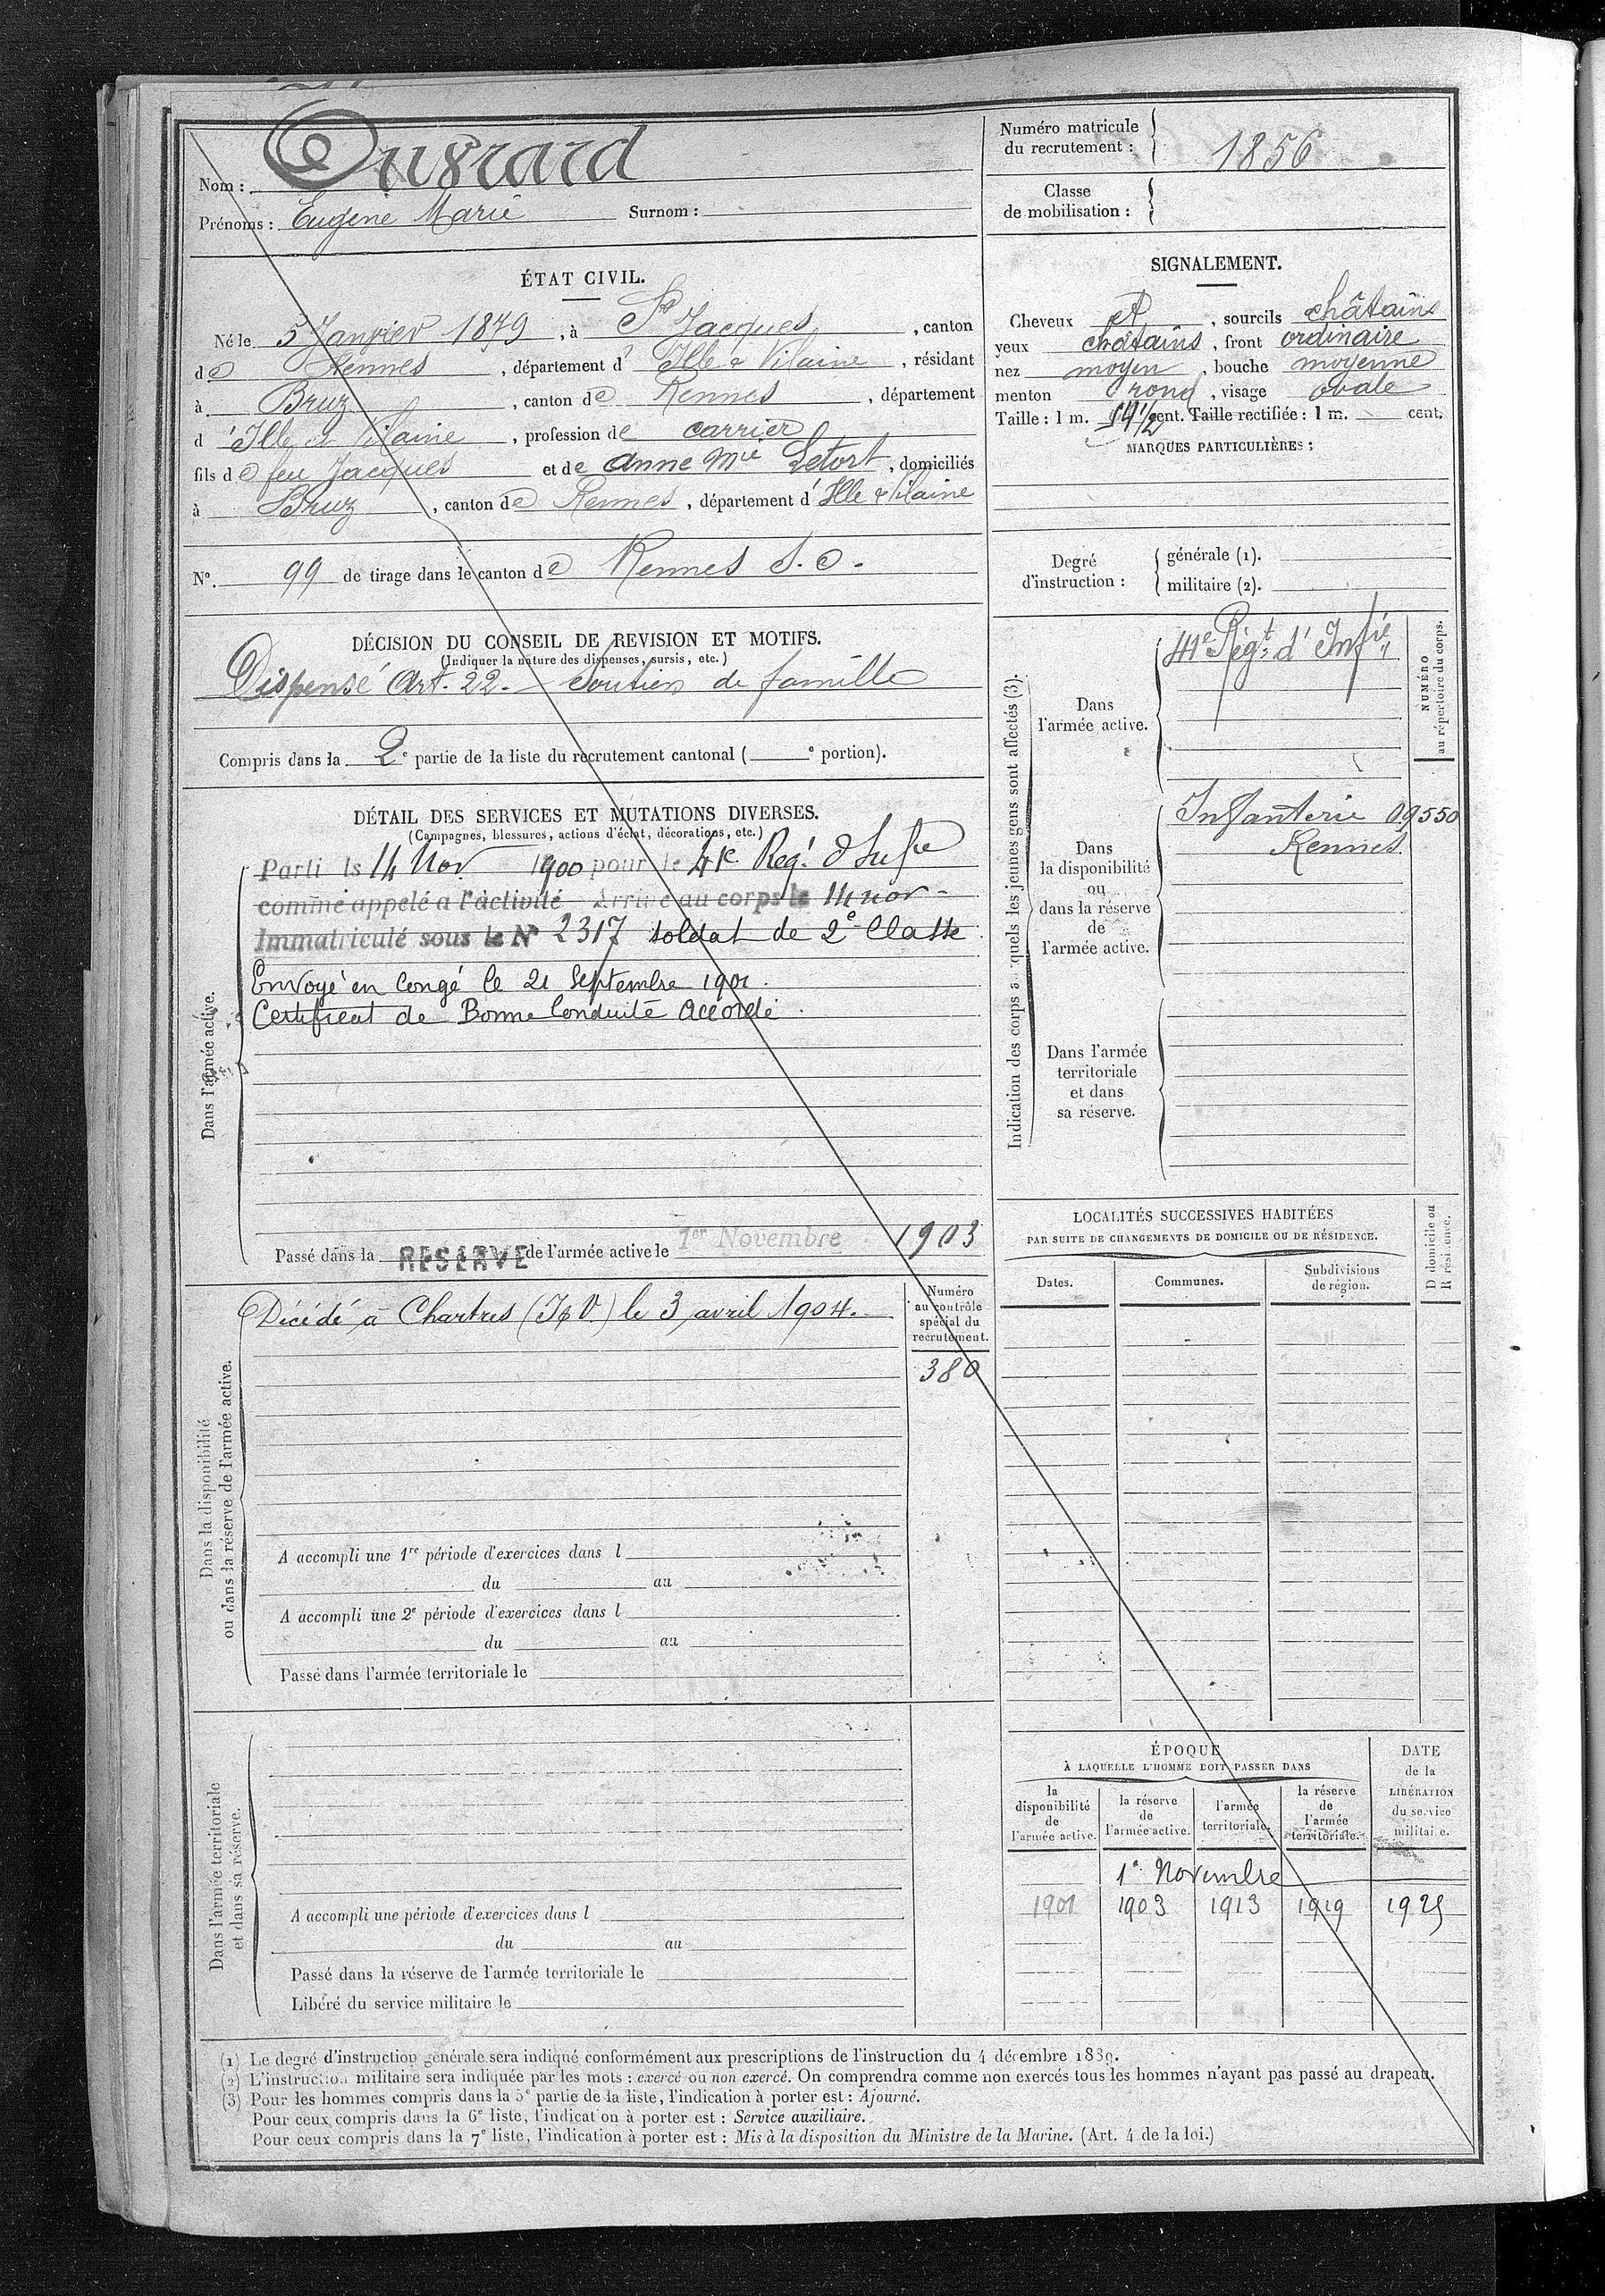 Nom :
Prénoms : Eugène Marie Surnom :
Numéro matricule
du recrutement : 1856
Classe
de mobilisation :
ÉTAT CIVIL.
Né le 5 Janvier 1879, à St Jacques, canton
de Rennes, département d'Ille & Vilaine, résidant
à Bruz, canton de Rennes, département
d'Ille et Vilaine, profession de carrier
fils de feu Jacques et de anne Mie Letort, domiciliés
à Bruz, canton de Rennes, département d'Ille & Vilaine
N° 99 de tirage dans le canton de Rennes S. O.
DÉCISION DU CONSEIL DE REVISION ET MOTIFS.
(Indiquer la nature des dispenses, sursis, etc.)
Dispensé Art. 22. - Soutien de famille
Compris dans la 2e partie de la liste du recrutement cantonal ( e portion).
DÉTAIL DES SERVICES ET MUTATIONS DIVERSES.
(Campagnes, blessures, actions d'éclat, décorations, etc.)
Dans l'armée active.
Parti le 14 Nov 1900 pour le 41e Regt. d'Infie
comme appelé à l'activité Arrivé au corps le 14 nov -
Immatriculé sous le N° 2317 soldat de 2e Classe
Envoyé en Congé le 21 Septembre 1901.
Certificat de Bonne Conduite Accordé.
Passé dans la RESERVE de l'armée active le 1er Novembre 1903
Dans la disponibilité
ou dans la réserve de l'armée active.
Décédé à Chartres (I&V.) le 3 avril 1904.
Numéro
au contrôle
spécial du
recrutement.
380
A accompli une 1re période d'exercices dans l
du au
A accompli une 2e période d'exercices dans l
du au
Passé dans l'armée territoriale le
Dans l'armée territoriale
et dans sa réserve.
A accompli une période d'exercices dans l
du au
Passé dans la réserve de l'armée territoriale le
Libéré du service militaire le
SIGNALEMENT.
Cheveux et, sourcils châtains
yeux châtains, front ordinaire
nez moyen, bouche moyenne
menton rond, visage ovale
Taille : 1 m. 54 1/2 cent. Taille rectifiée : 1 m. cent.
MARQUES PARTICULIÈRES :
Degré
d'instruction :
générale (1).
militaire (2).
Indication des corps auxquels les jeunes gens sont affectés (3).
NUMÉRO
au répertoire du corps.
Dans
l'armée active.
41e Régt. d'Infie
Dans
la disponibilité
ou
dans la réserve
de
l'armée active.
Infanterie 09550
Rennes
Dans l'armée
territoriale
et dans
sa réserve.
LOCALITÉS SUCCESSIVES HABITÉES
PAR SUITE DE CHANGEMENTS DE DOMICILE OU DE RÉSIDENCE.
Dates.
Communes.
Subdivisions
de région.
D domicile ou
R résidence.
ÉPOQUE
À LAQUELLE L'HOMME DOIT PASSER DANS
la
disponibilité
de
l'armée active.
la réserve
de
l'armée active.
l'armée
territoriale.
la réserve
de
l'armée
territoriale.
DATE
de la
LIBÉRATION
du service
militaire.
1er Novembre
1901 1903 1913 1919 1925
(1) Le degré d'instruction générale sera indiqué conformément aux prescriptions de l'instruction du 4 décembre 1889.
(2) L'instruction militaire sera indiquée par les mots : exercé ou non exercé. On comprendra comme non exercés tous les hommes n'ayant pas passé au drapeau.
(3) Pour les hommes compris dans la 5e partie de la liste, l'indication à porter est : Ajourné.
Pour ceux compris dans la 6e liste, l'indication à porter est : Service auxiliaire.
Pour ceux compris dans la 7e liste, l'indication à porter est : Mis à la disposition du Ministre de la Marine. (Art. 4 de la loi.)